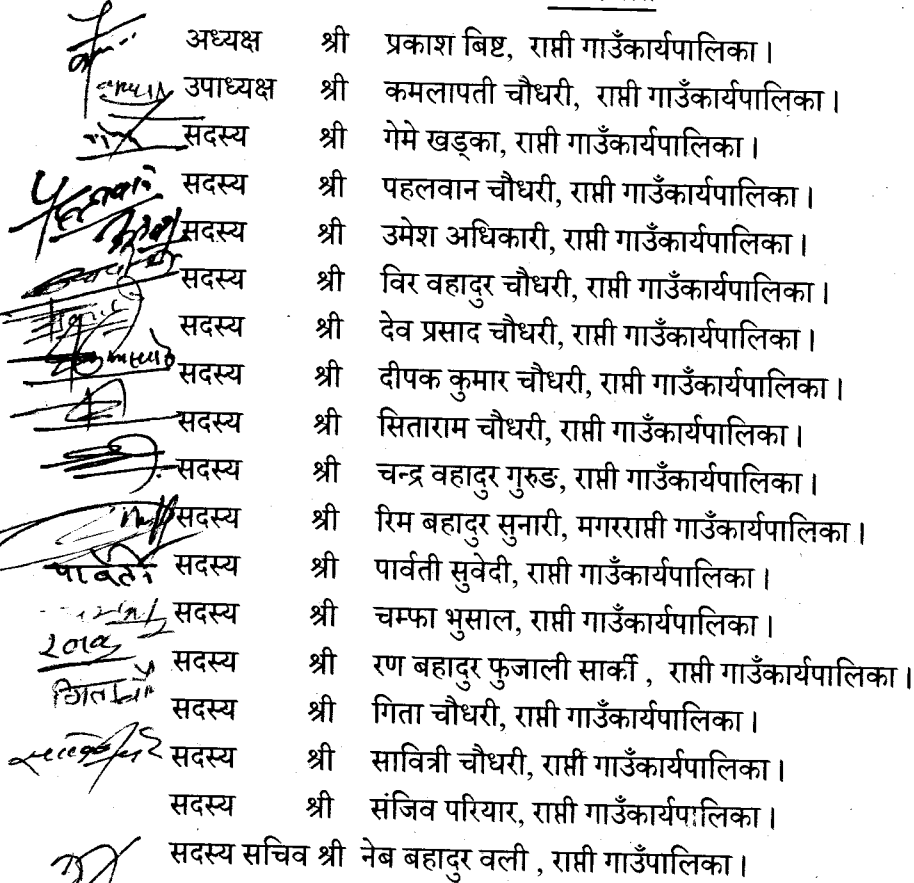 अध्यक्ष श्री प्रकाश बिष्ट, राप्ती गाउँकार्यपालिका।
उपाध्यक्ष श्री कमलापती चौधरी, राप्ती गाउँकार्यपालिका।
सदस्य श्री गेमे खड्का, राप्ती गाउँकार्यपालिका।
सदस्य श्री पहलवान चौधरी, राप्ती गाउँकार्यपालिका।
सदस्य श्री उमेश अधिकारी, राप्ती गाउँकार्यपालिका।
सदस्य श्री विर वहादुर चौधरी, राप्ती गाउँकार्यपालिका।
सदस्य श्री देव प्रसाद चौधरी, राप्ती गाउँकार्यपालिका।
सदस्य श्री दीपक कुमार चौधरी, राप्ती गाउँकार्यपालिका।
सदस्य श्री सिताराम चौधरी, राप्ती गाउँकार्यपालिका।
सदस्य श्री चन्द्र वहादुर गुरुङ, राप्ती गाउँकार्यपालिका।
सदस्य श्री रिम बहादुर सुनारी, मगरराप्ती गाउँकार्यपालिका।
पार्वती सदस्य श्री पार्वती सुवेदी, राप्ती गाउँकार्यपालिका।
सदस्य श्री चम्फा भुसाल, राप्ती गाउँकार्यपालिका।
सदस्य श्री रण बहादुर फुजाली सार्की , राप्ती गाउँकार्यपालिका।
सदस्य श्री गिता चौधरी, राप्ती गाउँकार्यपालिका।
सदस्य श्री सावित्री चौधरी, राप्ती गाउँकार्यपालिका।
सदस्य श्री संजिव परियार, राप्ती गाउँकार्यपालिका।
सदस्य सचिव श्री नेब बहादुर वली , राप्ती गाउँपालिका।